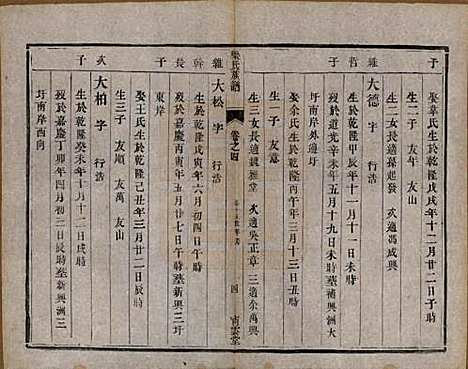 子
娶章氏生於乾隆戊戌年十二月廿二日子時
生二子 友
生二女長適孫起發 次適馮成興
雒 哲 子
大德 字 行浩
生於乾隆甲辰年十一月十一日
歿於道光辛未年五月十九日未時墓補興洲大
圩南岸外邊圩
娶余氏生於乾隆 年三月十三日寅時
生一子 友意
生三女長適魏雅堂 次適吳正章 三適余萬興
氏族譜
卷之四
四 南雲堂
雒 幹 長 子
大松 字 行浩
生於乾隆戊寅年六月初四日午時
歿於嘉慶丙寅年四月廿七日午時墓新興三圩
東岸
娶王氏生於乾隆己丑年三月廿二日辰時
生三子 友順 友萬 友山
次 子
大柏 字 行浩
生於乾隆癸未年十月十二日戌時
歿於嘉慶丁卯年四月初二日辰時墓新興洲三
圩南岸西向